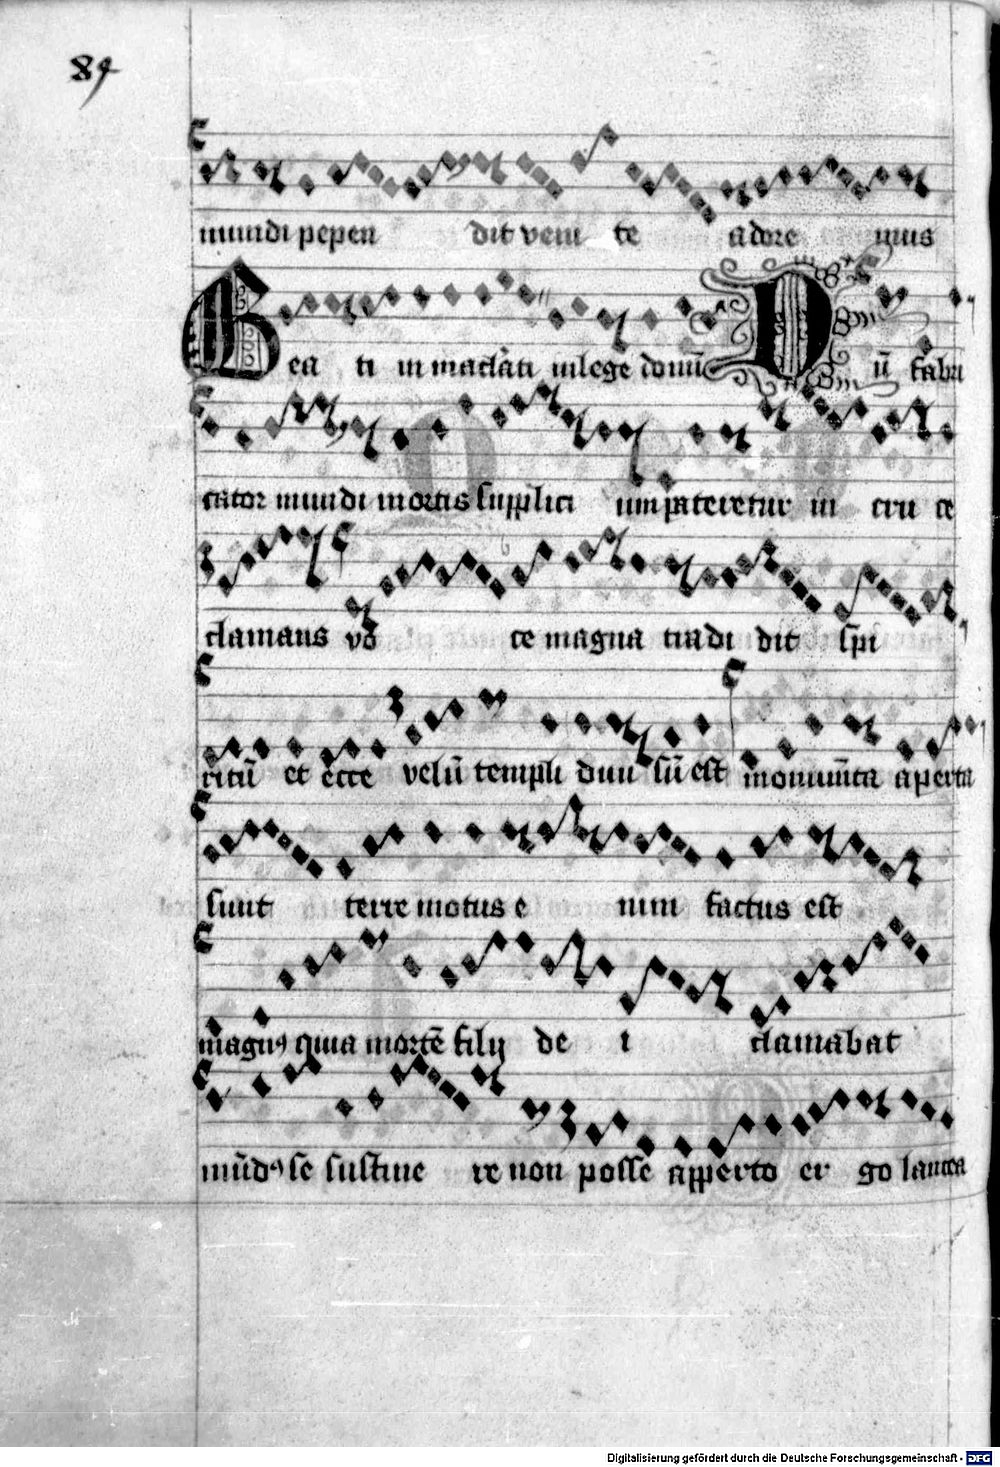 89
mundi pepen dit veni te adore mus
Bea ti in maclati in lege domī Dū fabri
cator mundi mortis supplici um pateretur in cru ce
clamans vo ce magna tradi dit spi
ritū et ecce velū templi diui sū est monumēta aperta
sunt terre motus e nim factus est
magnꝰ quia mortē filij de i clamabat
mūdꝰ se sustine re non posse apperto er go lancea
Digitalisierung gefördert durch die Deutsche Forschungsgemeinschaft - DFG